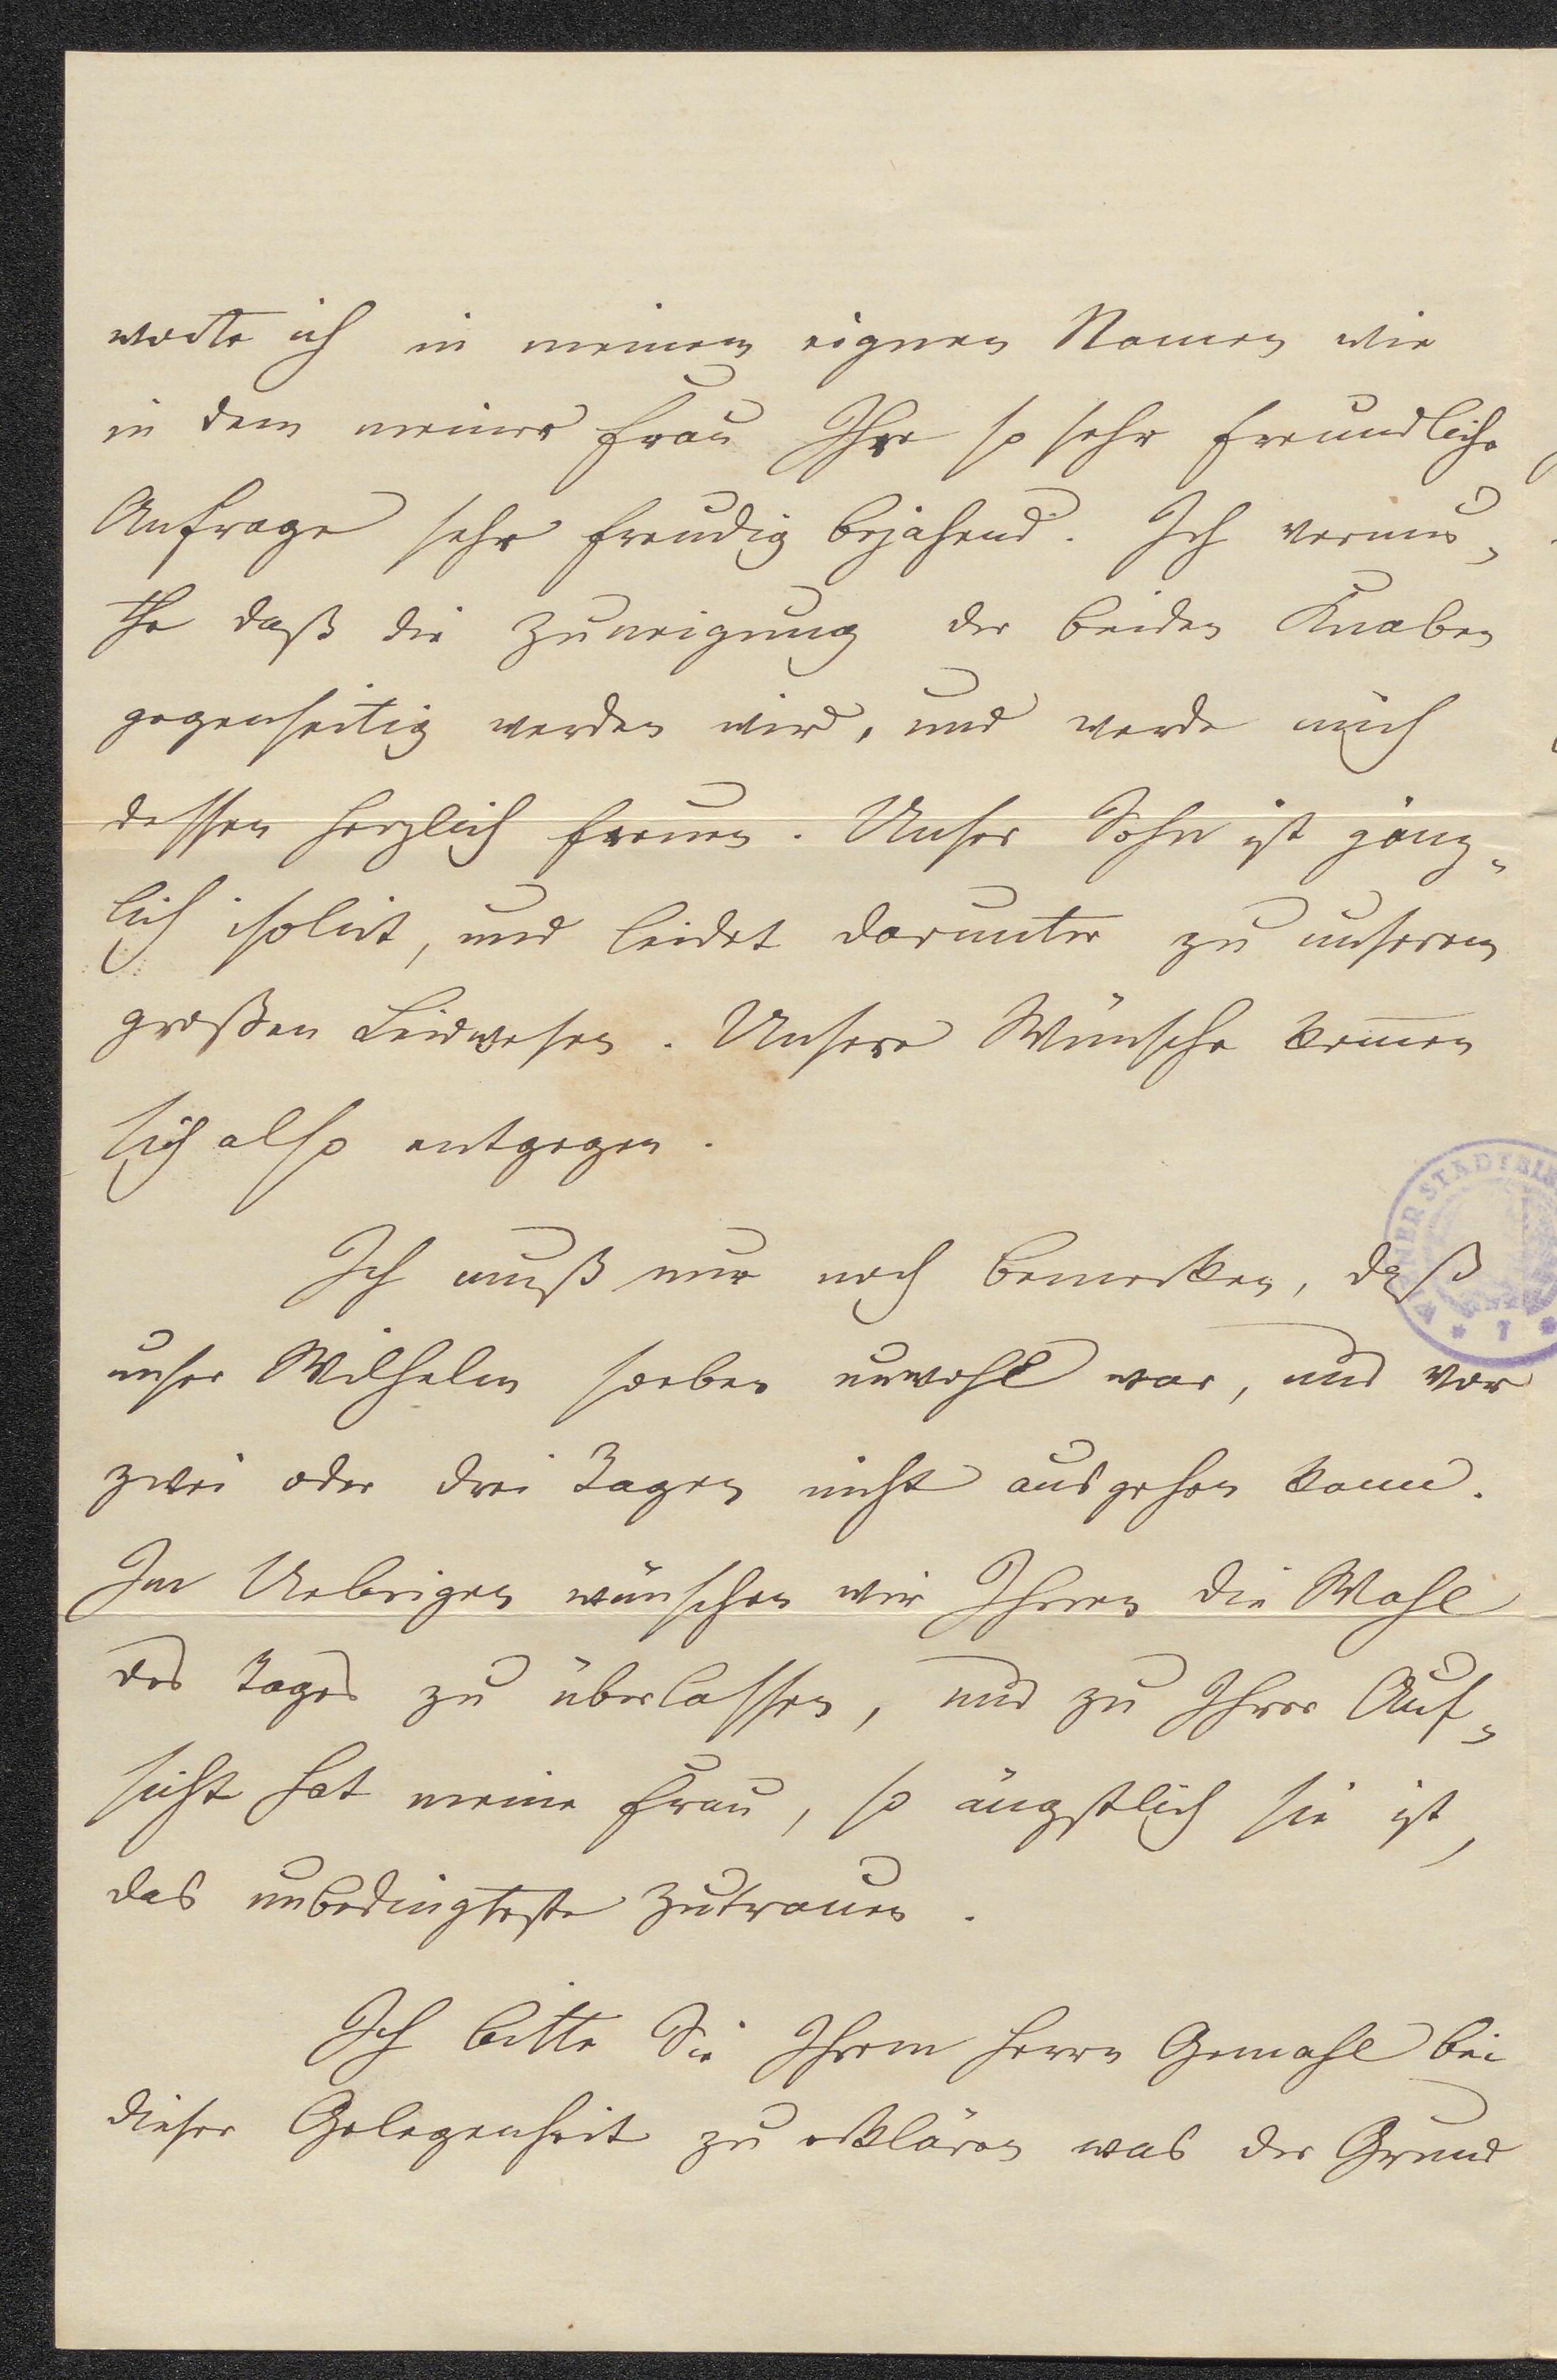 worte ich in meinem eignen Namen wie
in dem meiner Frau Ihre so sehr freundliche
Anfrage sehr freudig bejahend. Ich vermu-
the daß die Zuneigung der beiden Knaben
gegenseitig werden wird, und werde mich
dessen herzlich freuen. Unser Sohn ist gänz-
lich isolirt, und leidet darunter zu unserem
großen Leidwesen. Unsere Wünsche kom̅en
sich also entgegen.
Ich muß nur noch bemerken, daß
unser Wilhelm soeben unwohl war, und vor
zwei oder drei Tagen nicht ausgehen kann.
Im Uebrigen wünschen wir Ihnen die Wahl
des Tages zu überlassen, und zu Ihrer Auf-
sicht hat meine Frau, so ängstlich sie ist,
das unbedingteste Zutrauen.
Ich bitte Sie Ihrem Herrn Gemahl bei
dieser Gelegenheit zu erklären was der Grund